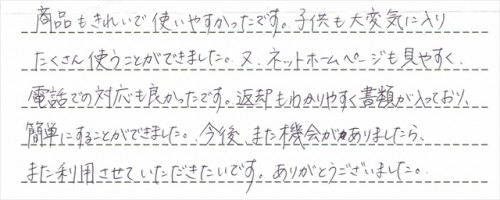 商品もきれいで使いやすかったです。子供も大変気に入り
たくさん使うことができました。又、ネットホームページも見やすく、
電話での対応も良かったです。返却もわかりやすく書類が入っており、
簡単にすることができました。今後、また機会がありましたら、
また利用させていただきたいです。ありがとうございました。